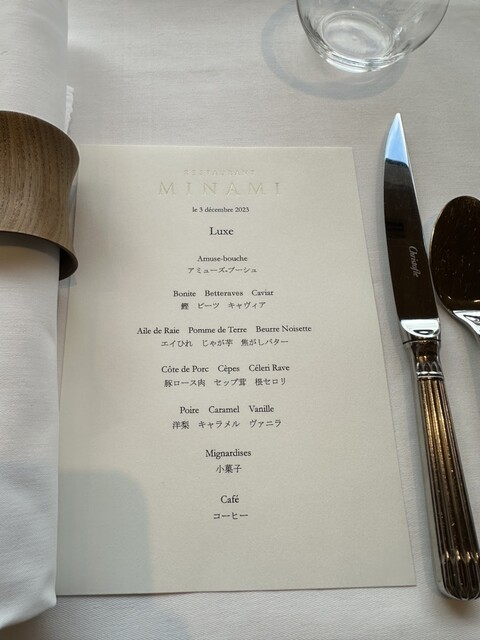 RESTAURANT
MINAMI
le 3 décembre 2023
Luxe
Amuse-bouche
アミューズ-ブーシュ
Bonite Betteraves Caviar
鰹 ビーツ キャヴィア
Aile de Raie Pomme de Terre Beurre Noisette
エイひれ じゃが芋 焦がしバター
Côte de Porc Cèpes Céleri Rave
豚ロース肉 セップ茸 根セロリ
Poire Caramel Vanille
洋梨 キャラメル ヴァニラ
Mignardises
小菓子
Café
コーヒー
Christofle